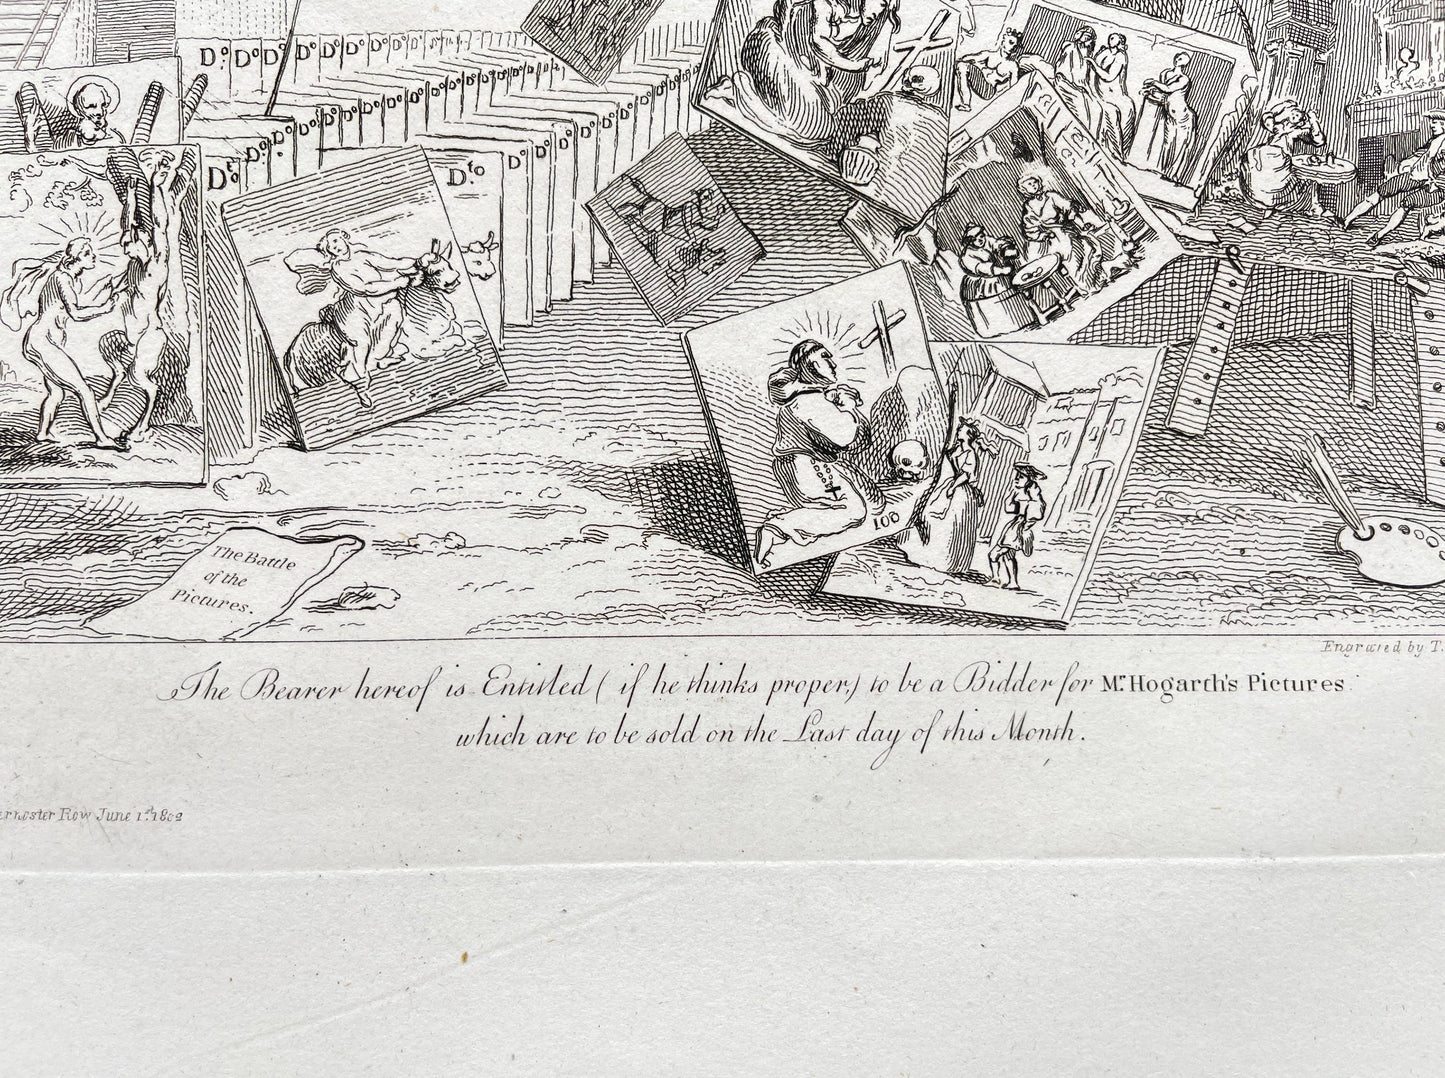 Do Do Do Do Do Do Do Do Do Do
Do Do Do Do Do Do Do Do Do Do Do Do Do Do
Dto Do Do Do Do Do Do Do
Dto Do Do Do Do Do Do Do Do Do
100
The Battle
of the
Pictures.
Engraved by T.
The Bearer hereof is Entitled (if he thinks proper,) to be a Bidder for Mr. Hogarth's Pictures
which are to be sold on the Last day of this Month.
Row June 1st. 1802